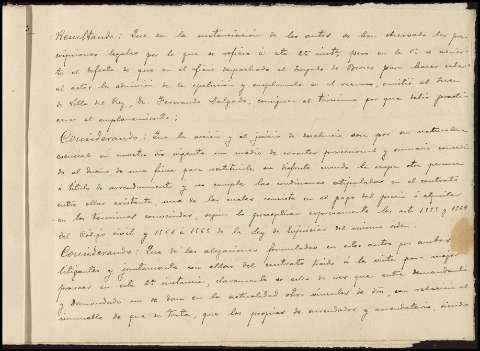 Resultando: Que en la sustanciación de los autos se han observado las pres-
cripciones legales por lo que se refiere á esta 2ª instª, pero en la 1ª se advier-
te el defecto de que en el oficio despachado al Juzgado de para hacer saber
al actor la admisión de la apelacion y emplazarlo en el mismo, omitió el Juez
de Villa del Rey, Dn. Fernando Salgado, consignar el término por que debia practi-
carse el emplazamiento;
Considerando: Que la acción y el juicio de desahucio son por su naturaleza
esencial en nuestro dro vigente un medio de caracter provisional y sumario concedi-
do al dueño de una finca para restituirle su disfrute cuando la ocupa otra persona
á titulo de arrendamiento y no cumple las condiciones estipuladas en el contrato
entre ellas existente, una de las cuales consiste en el pago del precio ó alquiler
en los terminos convenidos, segun lo preceptúan expresamente los art. 1555 y 1569
del Código civil y 1561 á 1563 de la Ley de Enjuiciar del mismo orden.
Considerando: Que de las alegaciones formuladas en estos autos por ambos
litigantes y juntamente con ellas del contrato traido á la vista para mejor
proveer en esta 2ª instancia, claramente se echa de ver que entre demandante
y demandado no se dan en la actualidad otros vínculos de dro, con relacion al
inmueble de que se trata, que los propios de arrendador y arrendatario, siendo